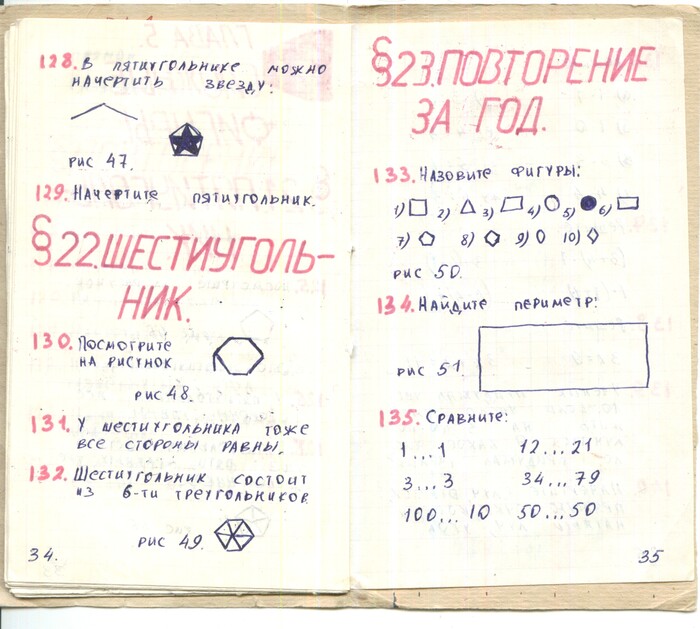 128. В ПЯТИУГОЛЬНИКЕ МОЖНО
НАЧЕРТИТЬ ЗВЕЗДУ:
РИС 47.
129. НАЧЕРТИТЕ ПЯТИУГОЛЬНИК.
§22. ШЕСТИУГОЛЬ-
НИК.
130. ПОСМОТРИТЕ
НА РИСУНОК
РИС 48.
131. У ШЕСТИУГОЛЬНИКА ТОЖЕ
ВСЕ СТОРОНЫ РАВНЫ.
132. ШЕСТИУГОЛЬНИК СОСТОИТ
ИЗ 6-ТИ ТРЕУГОЛЬНИКОВ.
РИС 49.
34.
§23. ПОВТОРЕНИЕ
ЗА ГОД.
133. НАЗОВИТЕ ФИГУРЫ:
1) 2) 3) 4) 5) 6)
7) 8) 9) 10)
РИС 50.
134. НАЙДИТЕ ПЕРИМЕТР:
РИС 51.
135. СРАВНИТЕ:
1...1 12...21
3...3 34...79
100...10 50...50
35